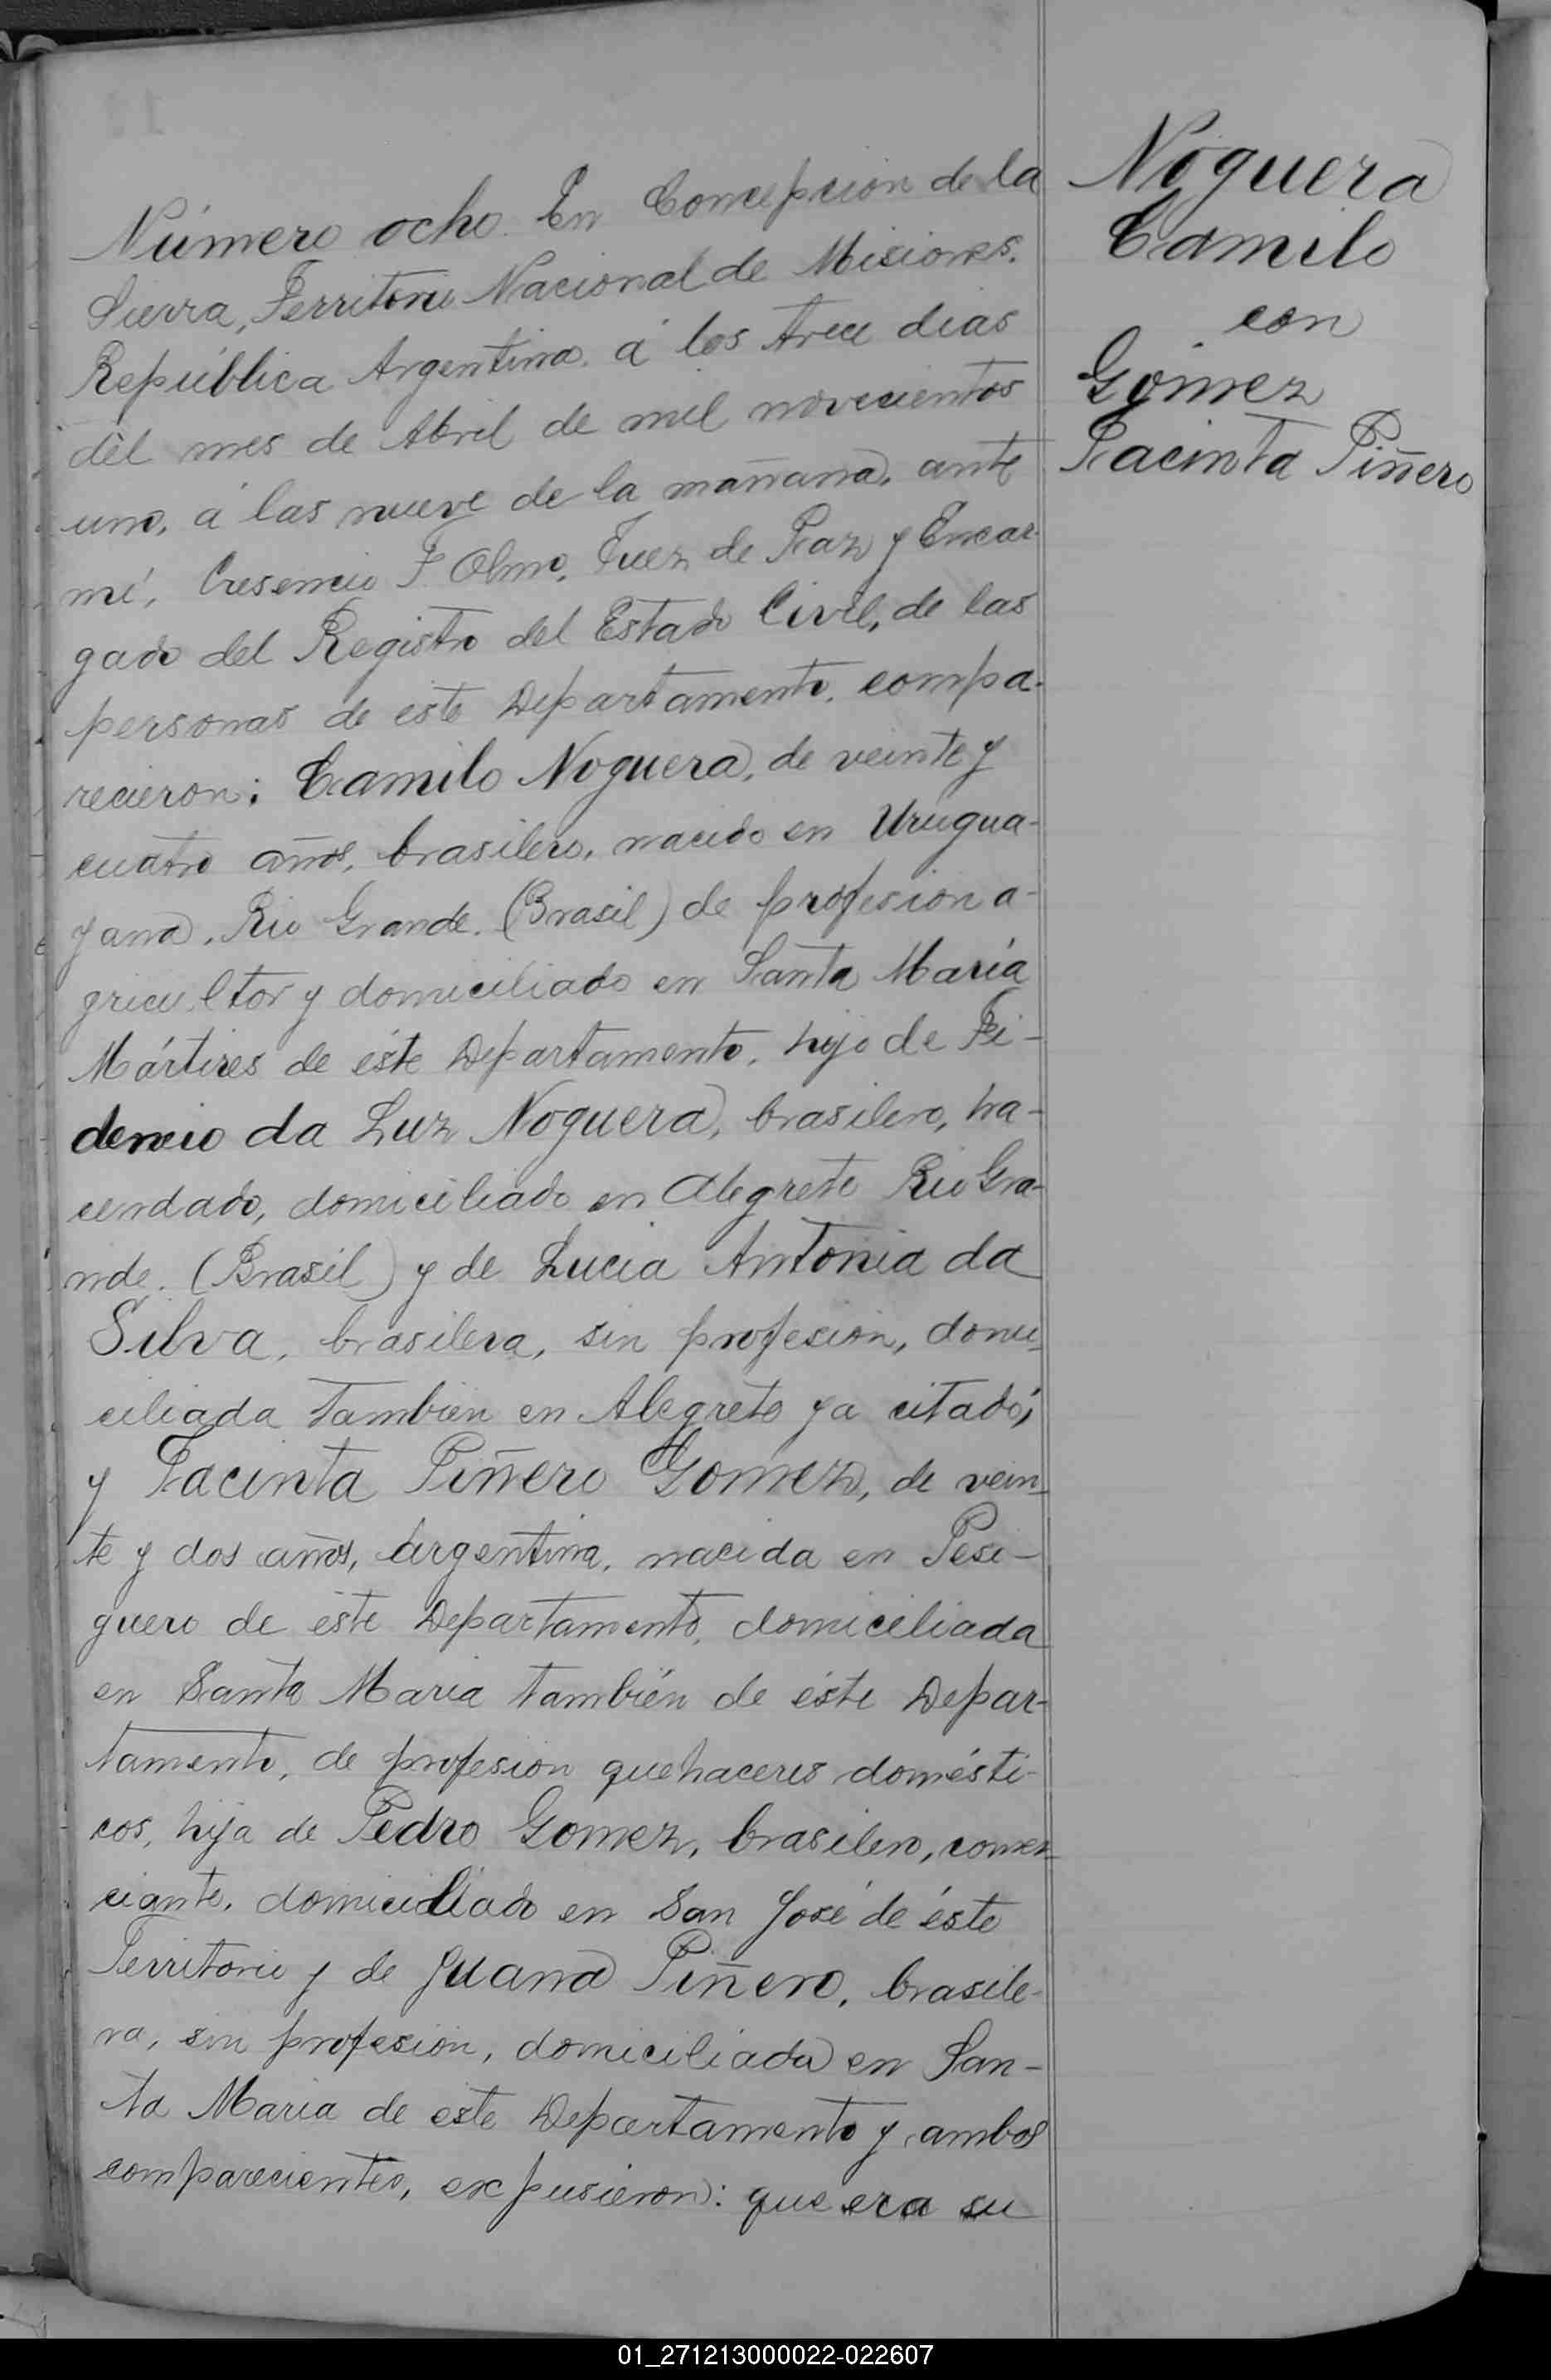 Número ocho. En Concepcion de la
Sierra, Territorio Nacional de Misiones.
República Argentina. á los trece dias
del mes de Abril de mil novecientos
uno, á las nueve de la mañana, ante
mí, Cresencio F. Olmo, Juez de Paz y Encar-
gado del Registro del Estado Civil, de las
personas de este Departamento, compa-
recieron: Camilo Noguera, de veinte y
cuatro años, brasilero, nacido en Urugua-
yana, Rio Grande. (Brasil) de profesion a-
gricultor y domiciliado en Santa María
Mártires de éste Departamento, hijo de Fi-
dencio da Luz Noguera, brasilero, ha-
cendado, domiciliado en Alegrete Rio Gra-
nde. (Brasil) y de Lucia Antonia da
Silva, brasilera, sin profesion, domi-
ciliada tambien en Alegrete ya citado;
y Jacinta Piñero Gomez, de vein-
te y dos años, Argentina, nacida en Pesi-
guero de éste Departamento, domiciliada
en Santa Maria también de éste Depar-
tamento, de profesion quehaceres domésti-
cos, hija de Pedro Gomez, brasilero, comer-
ciante, domiciliado en San José de éste
Territorio y de Juana Piñero, brasile-
ra, sin profesion, domiciliada en San-
ta Maria de este Departamento y ambos
comparecientes, expusieron: que era su
Noguera
Camilo
con
Gómez
Jacinta Piñero
01_271213000022-022607